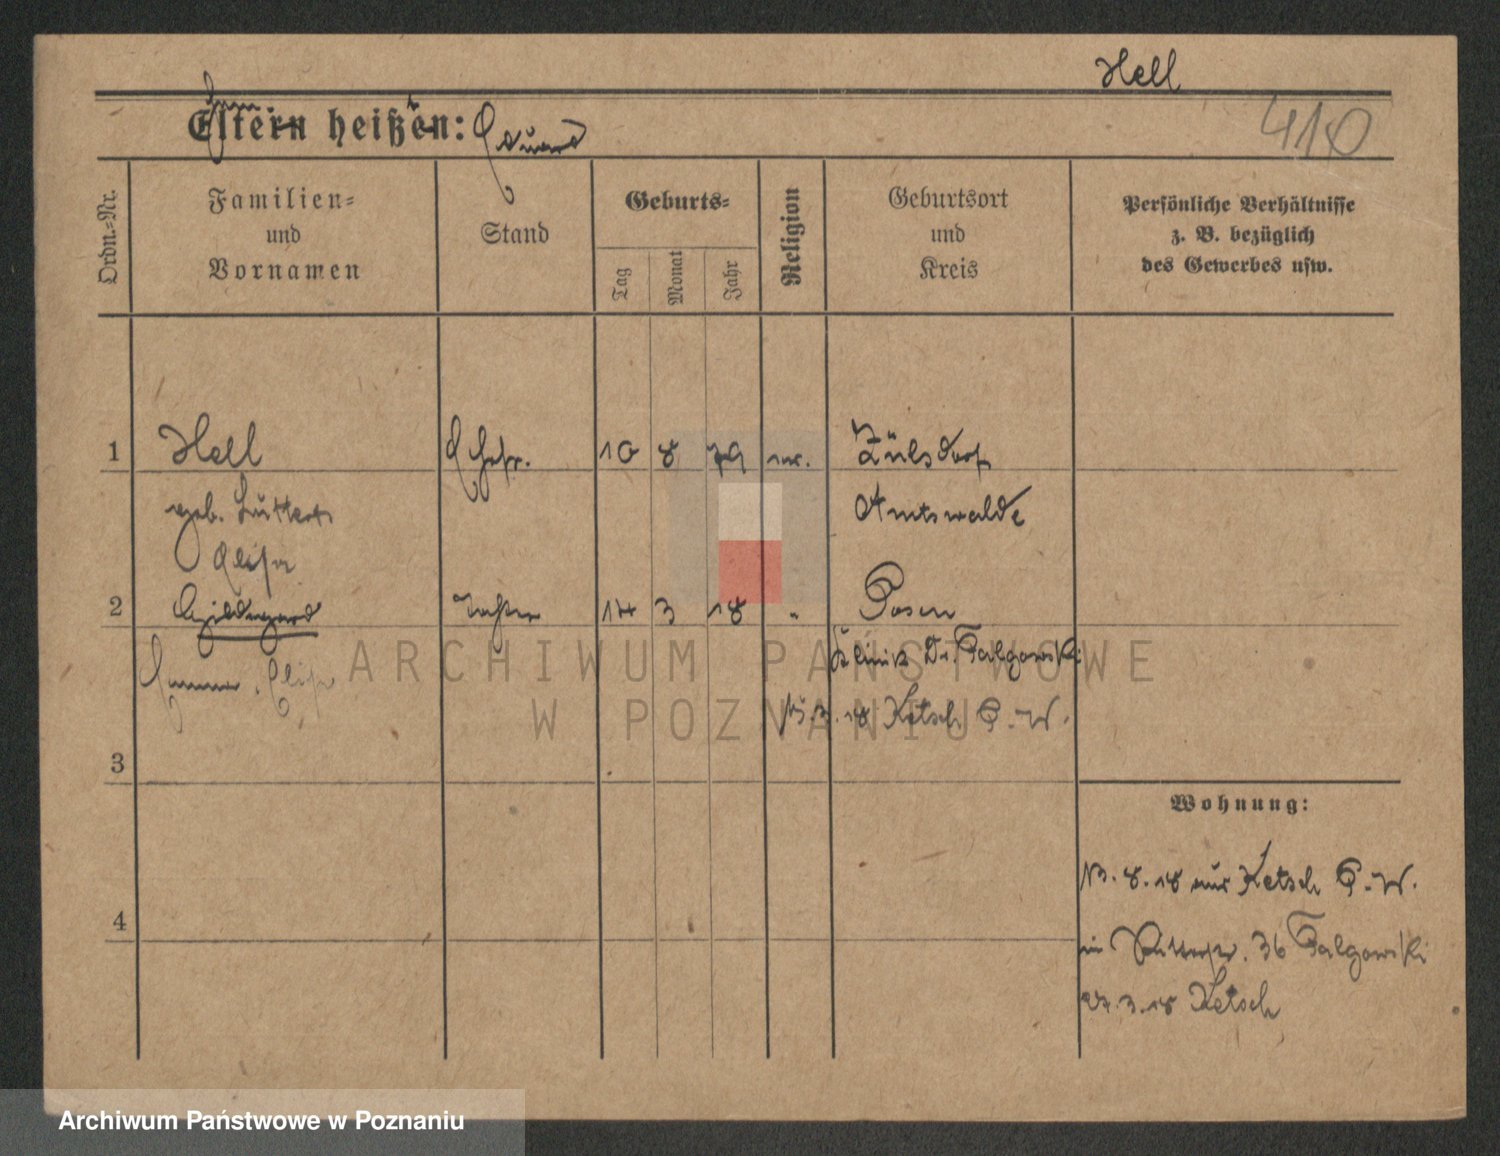 Hell
410
Eltern heißen: Eduard
Ordn.-Nr.
Familien-
und
Vornamen
Stand
Geburts-
Tag
Monat
Jahr
Religion
Geburtsort
und
Kreis
Persönliche Verhältnisse
z. B. bezüglich
des Gewerbes usw.
1 Hell Ehefr. 10 8 79 ev. Zülsdorf
geb. Arnswalde
Elise
2 Hildegard Tochter 14 3 18 " Posen
Klinik Dr. Falgowski
Emma Elise
3. 18 Ketsch P.-W.
3
Wohnung:
13. 8. 18 aus Ketsch P.-W.
4
in Ritterstr. 36 Falgowski
3. 18 Ketsch
ARCHIWUM PAŃSTWOWE
W POZNANIU
Archiwum Państwowe w Poznaniu